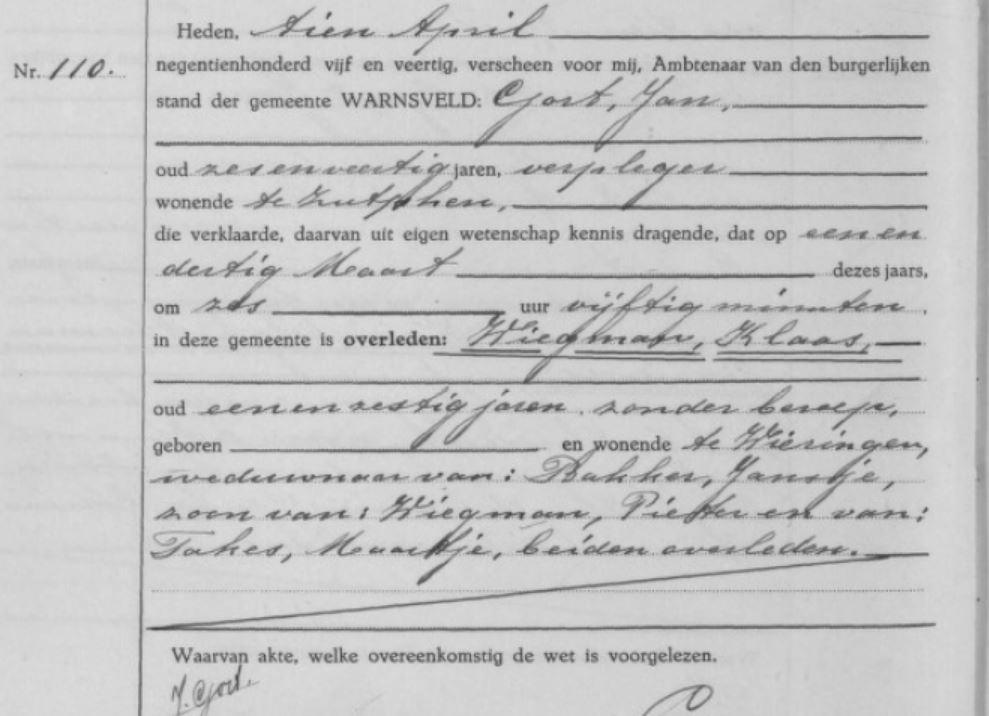 Heden, tien April
Nr. 110. negentienhonderd vijf en veertig, verscheen voor mij, Ambtenaar van den burgerlijken
stand der gemeente WARNSVELD: Gort, Jan,
oud zesenveertig jaren, verpleger
wonende te Zutphen,
die verklaarde, daarvan uit eigen wetenschap kennis dragende, dat op eenen
dertig Maart dezes jaars,
om zes uur vijftig minuten
in deze gemeente is overleden: Wiegman, Klaas,
oud eenenzestig jaren zonder beroep,
geboren en wonende te Wieringen,
weduwnaar van: Bakker, Jansje,
zoon van: Wiegman, Pieter en van:
Takes, Maartje, beiden overleden.
Waarvan akte, welke overeenkomstig de wet is voorgelezen.
J. Gort.